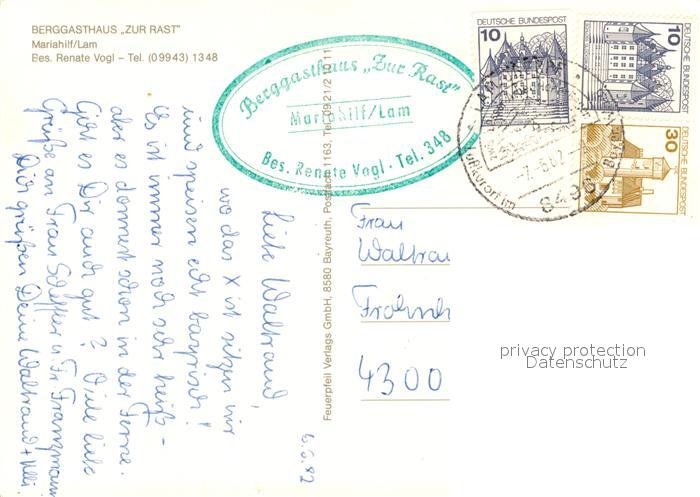 BERGGASTHAUS „ZUR RAST"
Mariahilf/Lam
Bes. Renate Vogl – Tel. (09943) 1348
Berggasthaus „Zur Rast"
Mariahilf/Lam
Bes. Renate Vogl · Tel. 348
DEUTSCHE BUNDESPOST
10
DEUTSCHE BUNDESPOST
10
DEUTSCHE BUNDESPOST
30
Luftkurort im
8496
6.8.82
Liebe Waltraud,
wo das X ist sitzen wir
und speisen echt bayrisch!
Es ist immer noch sehr heiß –
aber es donnert schon in der Ferne.
Geht es Dir auch gut? Viele liebe
Grüße an Frau Scheffler u. Fr. Franzmann
Dich grüßen Deine Waltraud + Willi.
Feuerpfeil Verlags GmbH, 8580 Bayreuth, Postfach 1163, Tel. 0921/21011
Frau
Waltrau
4300
privacy protection
Datenschutz